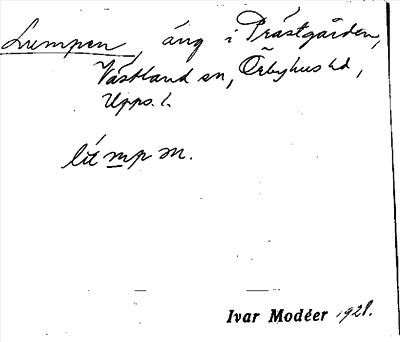 Lumpen, äng i Prästgården,
Västland sn, Örbyhus hd,
Upps. l.
lúmpm.
Ivar Modéer 1928.